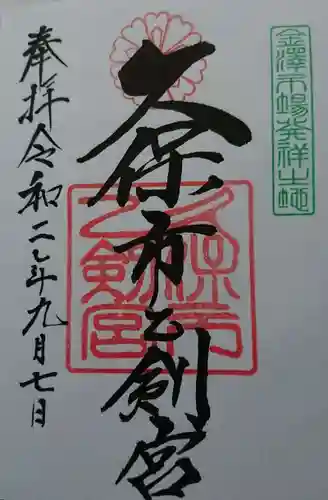 金澤市場発祥之地
久保市乙剣宮
久保市
乙剣宮
奉拝 令和二年九月七日